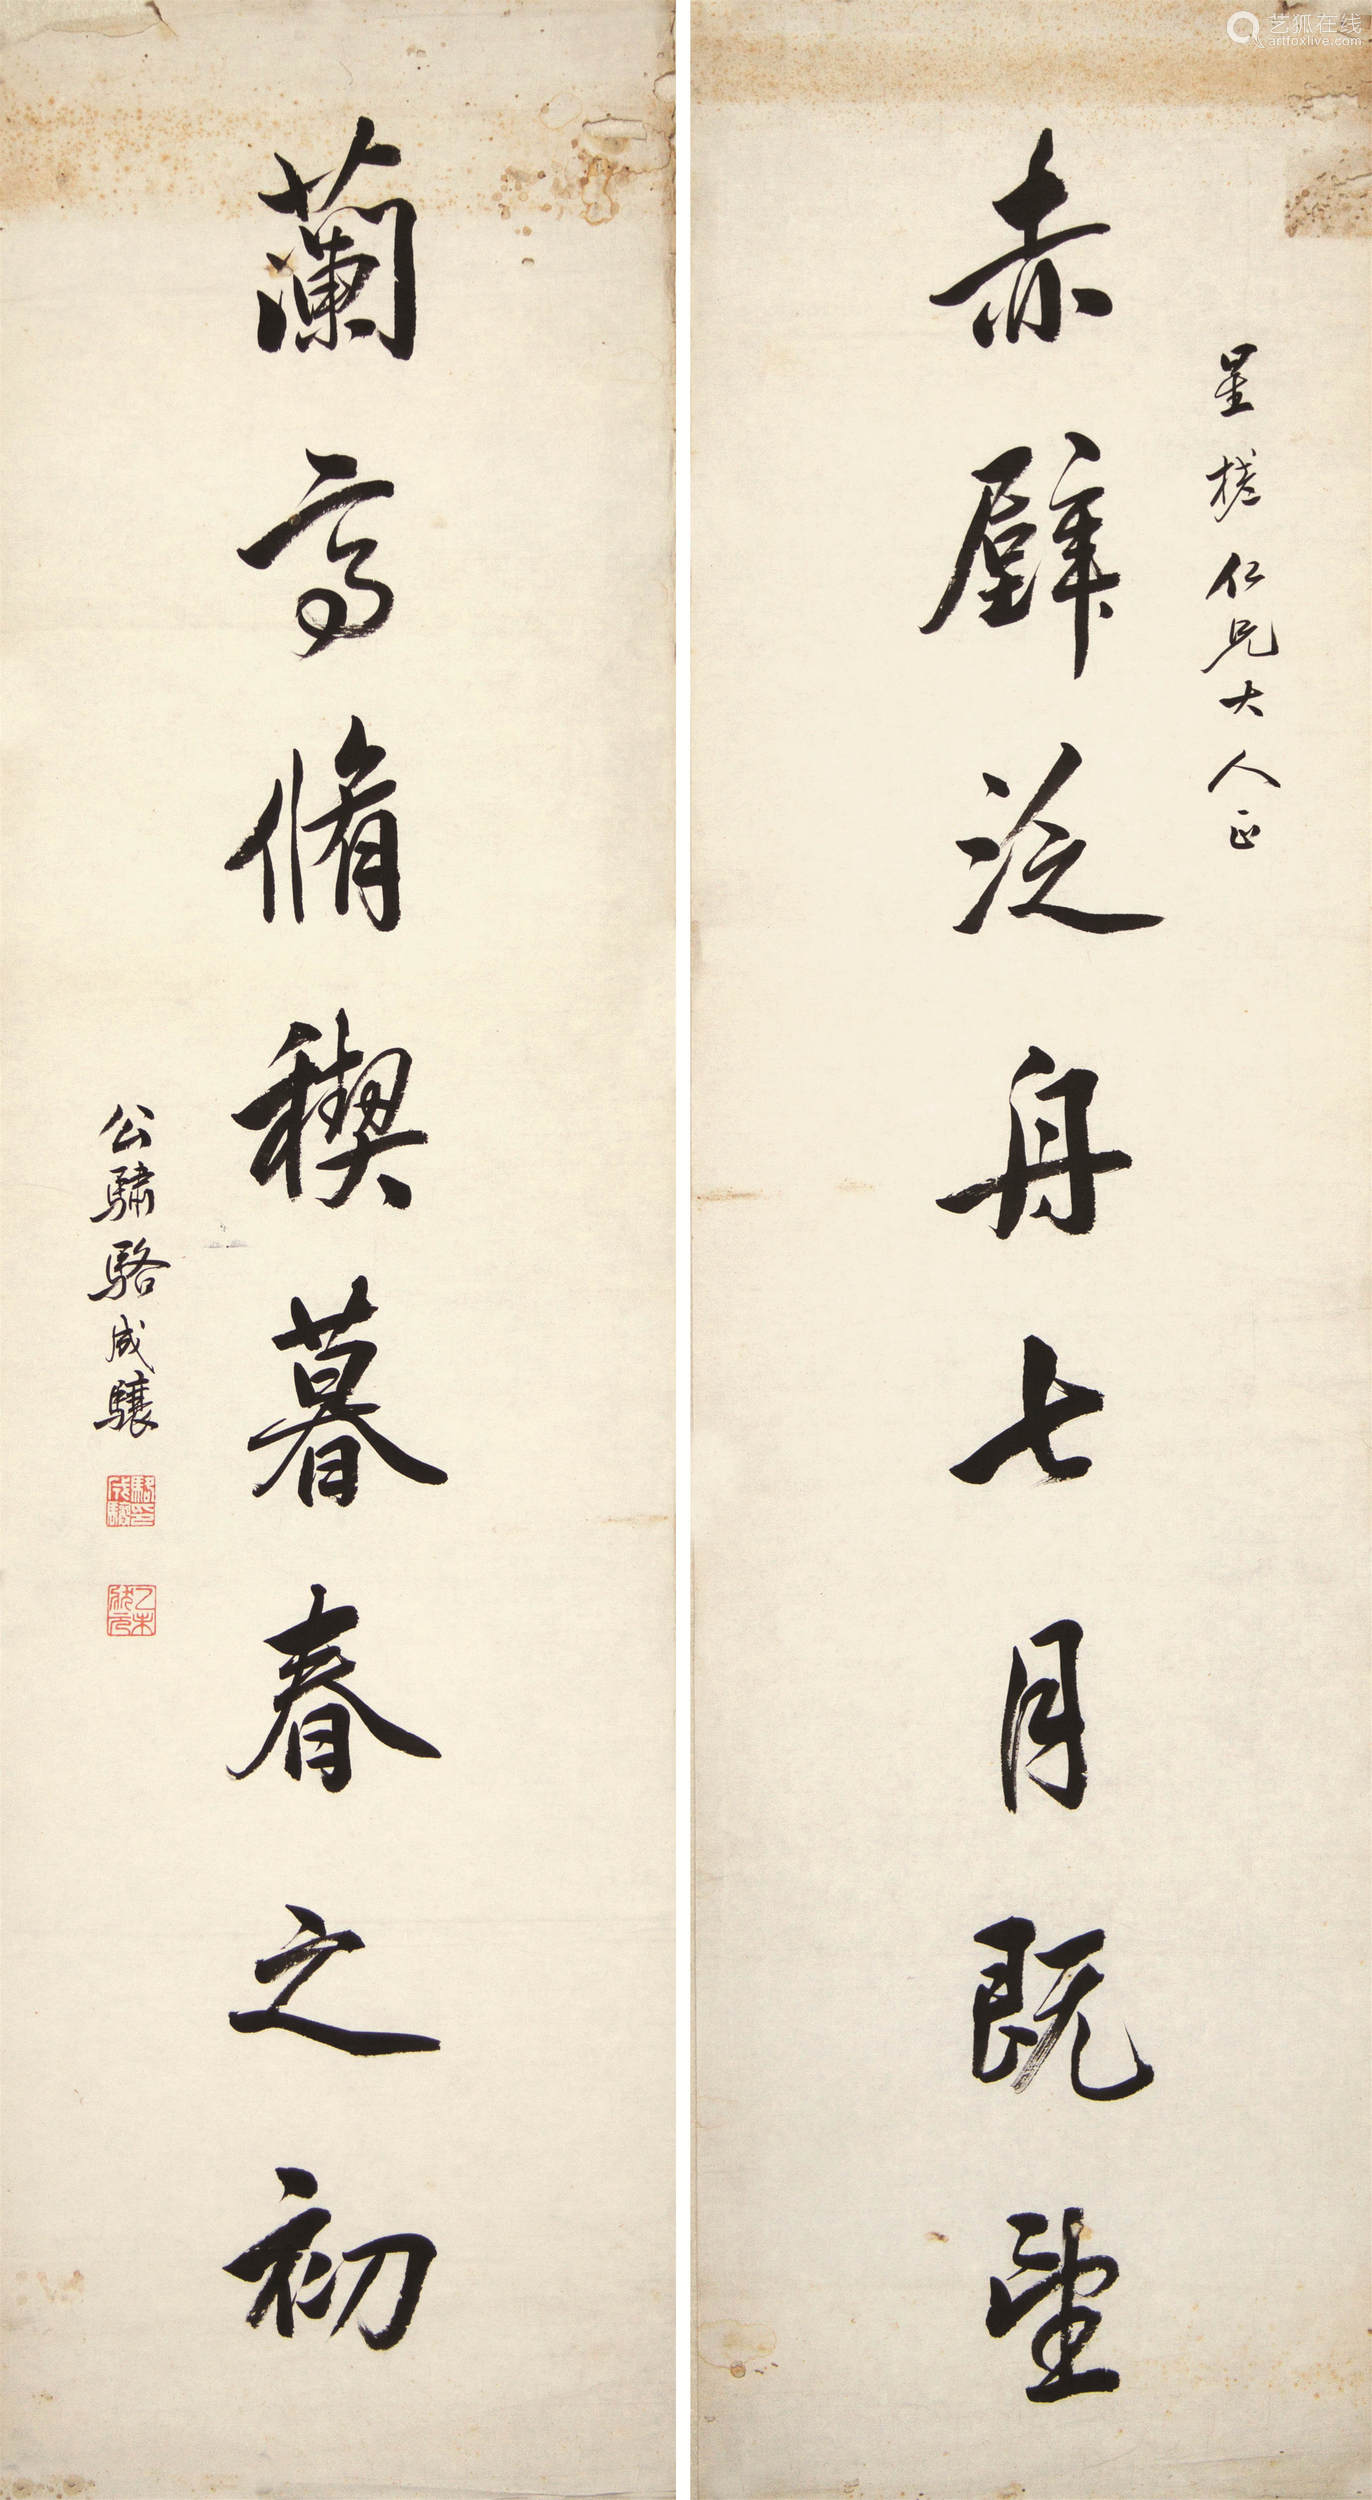 星槎仁兄大人正
赤壁泛舟七月既望
蘭亭脩禊暮春之初
公驌駱成驤
駱成驤印
乙未狀元
艺狐在线
artfoxlive.com